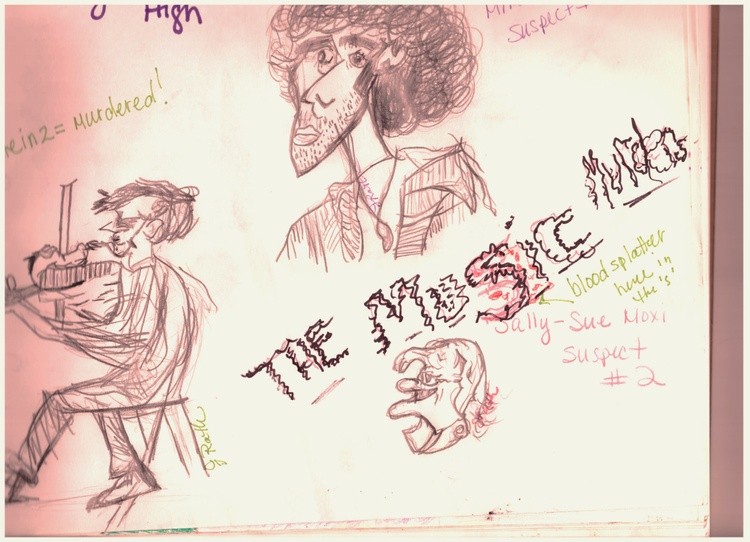 High
Suspect
rein2 = Murdered!
THE MUSIC MAN
blood splatter
here in
the 's'
Sally-Sue Moxi
Suspect
# 2
J Rath